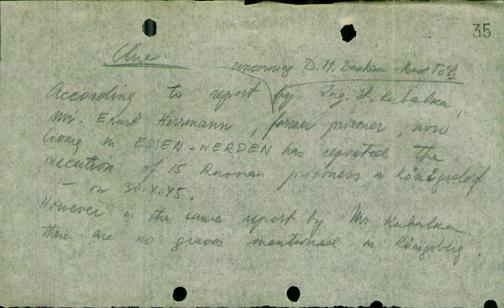 35
Clue concerning D.M. Dachau - Bad Tölz
According to report by Ing. H. Kubalka,
Mr. Ernst Herrmann, former prisoner, now
living in ESSEN-WERDEN has reported the
execution of 15 Russian prisoners in Königsdorf
- on 30.4.45.
However in the same report by Mr. Kubalka
there are no graves mentioned in Königsberg.